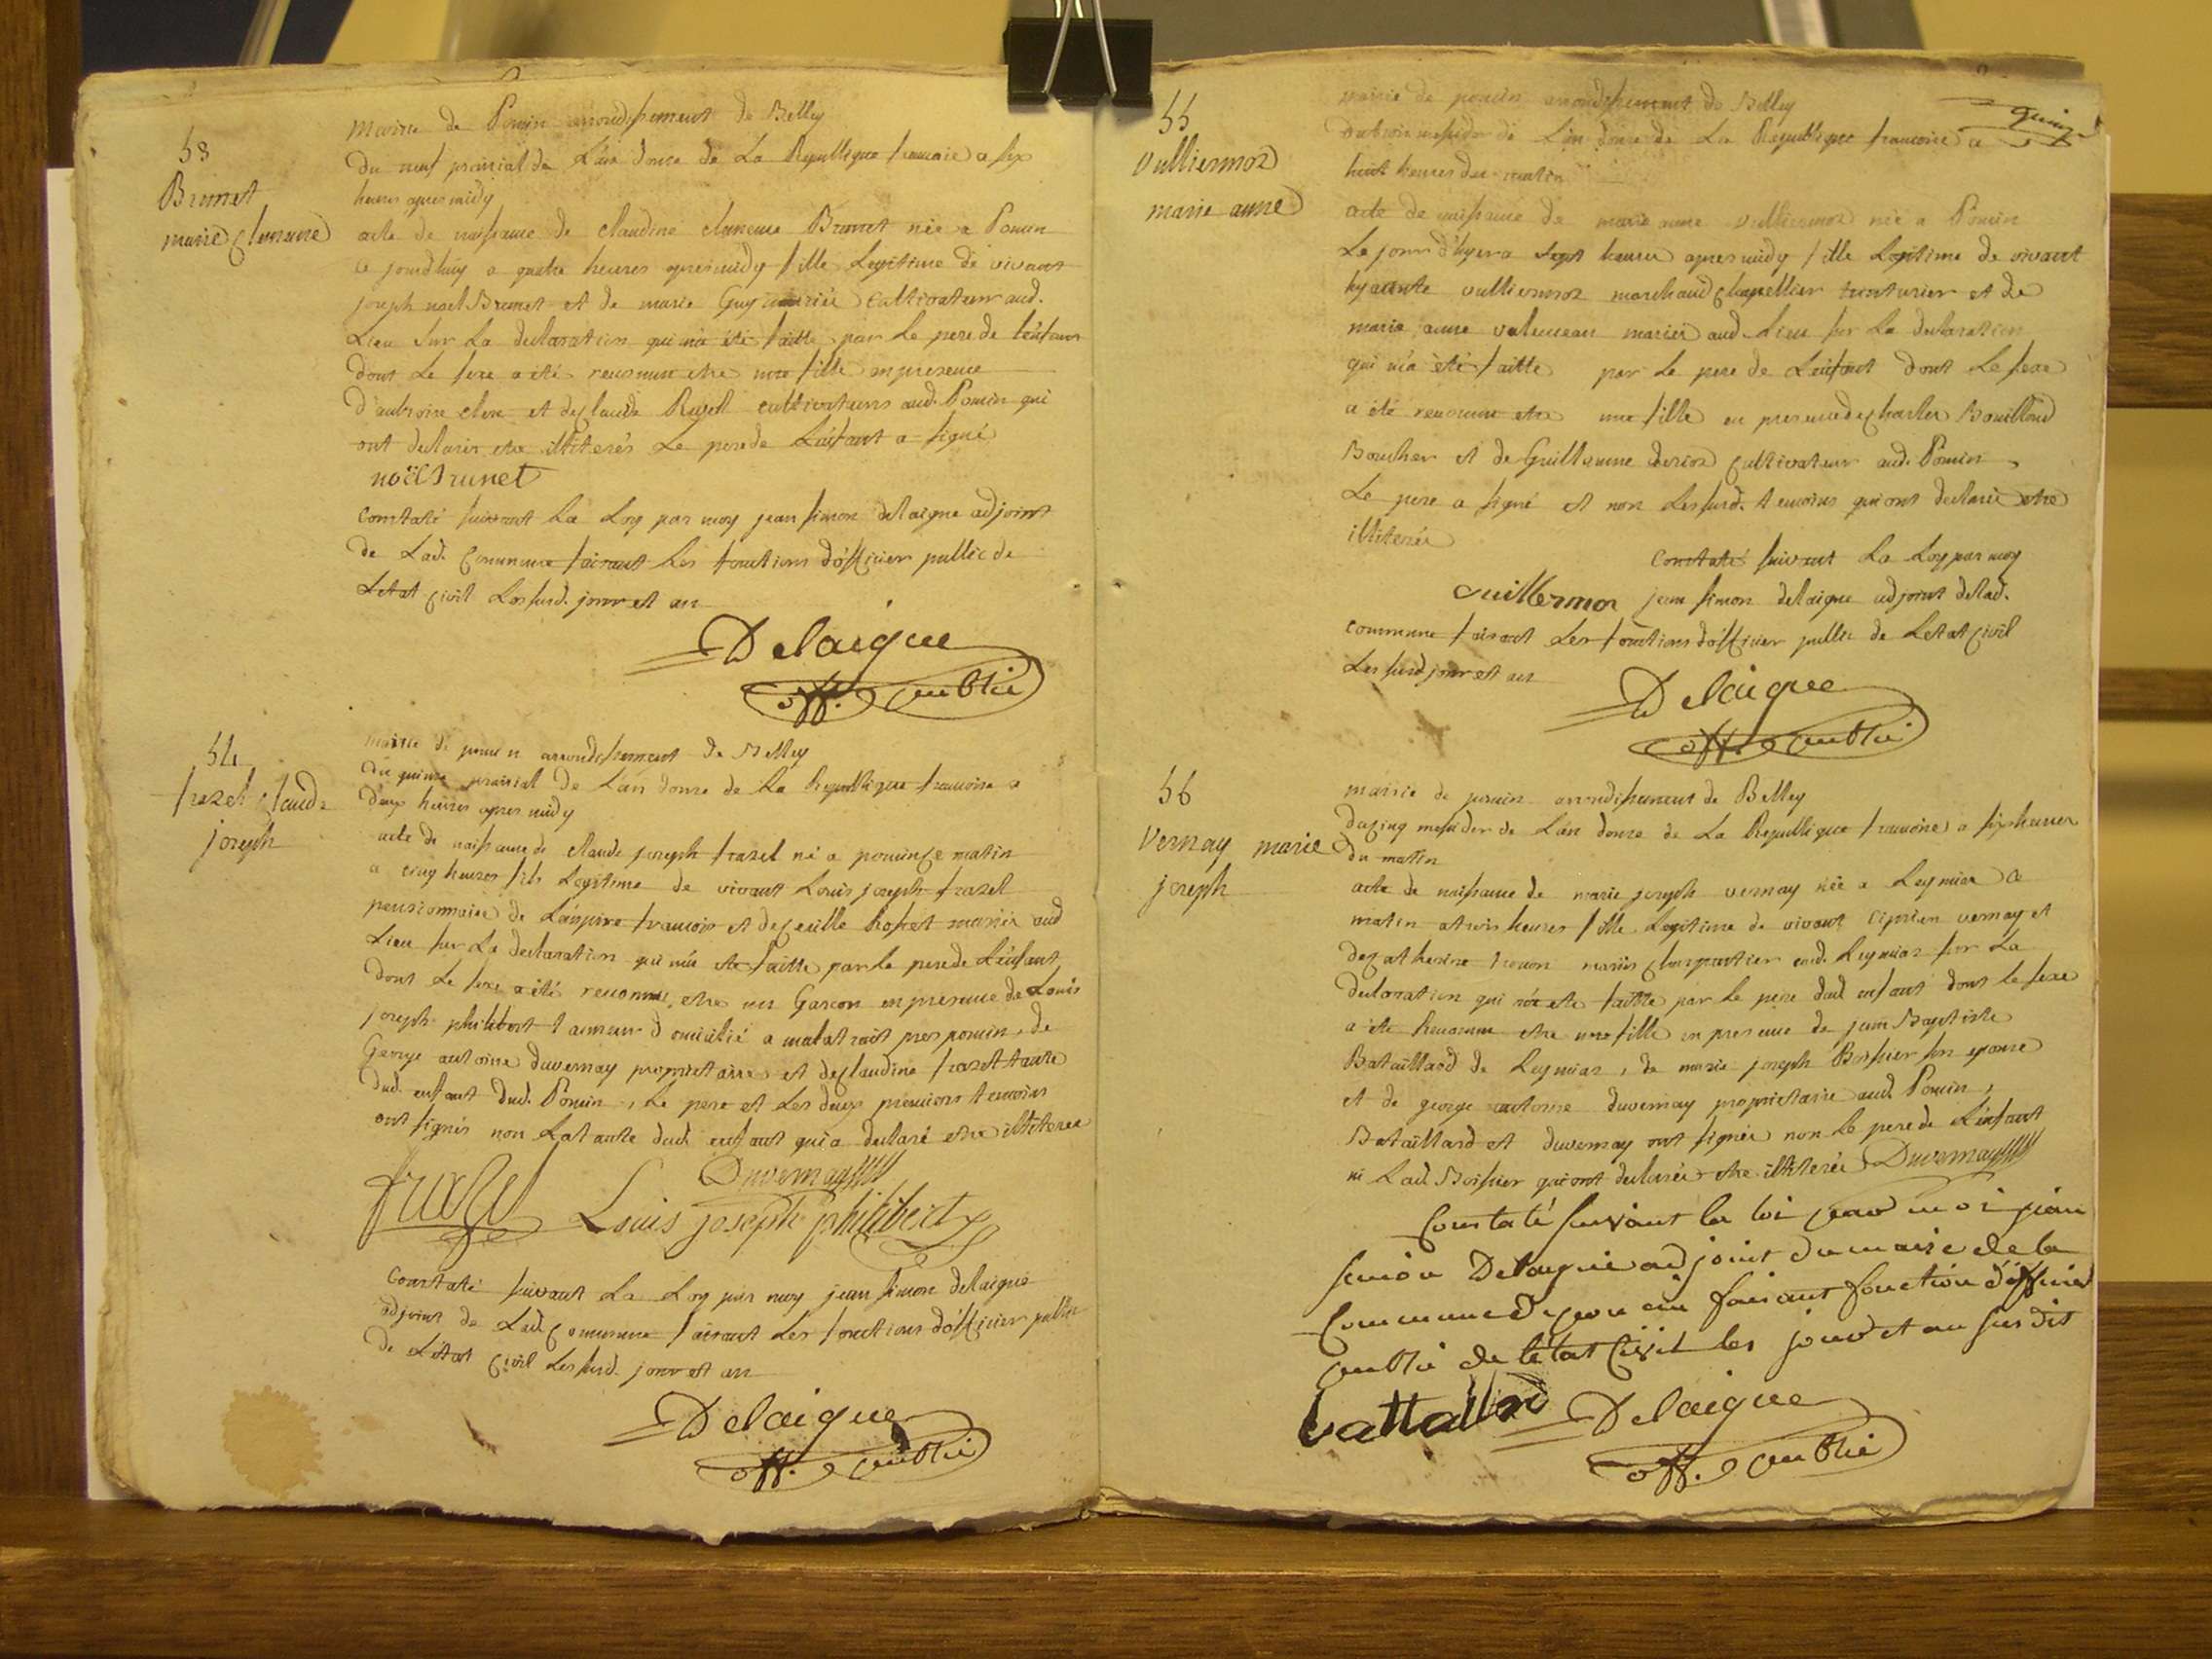 53
Brunet
marie clemence
Mairie de Poncin arrondissement de Belley
Du neuf prairial de L'an douze de La Republique francaise a six
heures apres midy
acte de naissance de claudine clemence Brunet née a Poncin
ce jourd'huy a quatre heures apres midy fille Legitime de vivant
joseph noel Brunet et de marie Guy mariés cultivateur aud.
Lieu sur La declaration qui m'a été faitte par Le pere de L'enfant
dont Le sexe a été reconnu etre une fille en presence
d'antoine clerc et de claude cultivateurs aud. Poncin qui
ont declarés etre illiterés Le pere de L'enfant a signé
noël Brunet
Constaté suivant La Loy par moy jean simon delaigue adjoint
de Lad. Commune faisant Les fonctions d'officier public de
L'etat civil Les susd. jour et an
Delaigue
off. public
54
frazel claude
joseph
mairie de poncin arrondissement de Belley
du quinze prairial de L'an douze de La Republique francoise a
deux heures apres midy
acte de naissance de claude joseph frazel né a poncin ce matin
a cinq heures fils Legitime de vivant Louis joseph frazel
pensionnaire de L'anpire francois et de cecille Rosset mariés aud
Lieu sur La declaration qui m'a ete faitte par Le pere de L'enfant
dont Le sexe a été reconnu etre un Garcon en presence de Louis
joseph philibert domicilié a malatrait pres poncin, de
George antoine duvernay proprietaire et de claudine frazel tante
dud. enfant dud. Poncin, Le pere et Les deux premiers temoins
ont signés non La tante dud enfant qui a declaré etre illiteree
frazel
Duvernay
Louis joseph philibert
Constaté suivant La Loy par moy jean simon delaigue
adjoint de Lad. Commune faisant Les fonctions d'officier public
de L'etat civil Les susd. jour et an
Delaigue
off. public
quinze
55
Vulliermoz
marie anne
mairie de poncin arrondissement de Belley
Du trois messidor de L'an douze de La Republique francoise a
huit heures du matin
acte de naissance de marie anne vulliermoz née a Poncin
Le jour d'hyer a sept heures apres midy fille Legitime de vivant
hyacinte vulliermoz marchand chapellier teinturier et de
marie anne mariés aud. Lieu sur La declaration
qui m'a été faitte par Le pere de L'enfant dont Le sexe
a été reconnu etre une fille en presence de charles Bouilloud
Boucher et de Guillaume cultivateur aud. Poncin,
Le pere a signé et non Les susd. temoins qui ont declaré etre
illiterés
Constaté suivant La Loy par moy
Vuillermoz jean simon delaigue adjoint de Lad.
commune faisant Les fonctions d'officier public de L'etat civil
Les susd jour et an
Delaigue
off. public
56
Vernay marie
joseph
mairie de poncin arrondissement de Belley
du cinq messidor de L'an douze de La Republique francoise a six heures
du matin
acte de naissance de marie joseph vernay née a Leymiaz ce
matin a trois heures fille Legitime de vivant Ciprien vernay et
de catherine mariés charpentier aud. Leymiaz sur La
declaration qui m'a ete faitte par Le pere dud enfant dont Le sexe
a été reconnu etre une fille en presence de jean Baptiste
Bataillard de Leymiaz, de marie joseph Boissier son epouse
et de george antoine duvernay proprietaire aud. Poncin,
Bataillard et duvernay ont signés non Le pere de L'enfant
ni Lad. Boissier qui ont declarés etre illiterés Duvernay
Constaté suivant la loi par moi jean
simon Delaigue adjoint du maire de la
Commune de poncin faisant fonction d'officier
public de l'état civil les jour et an susdit
battallard
Delaigue
off. public